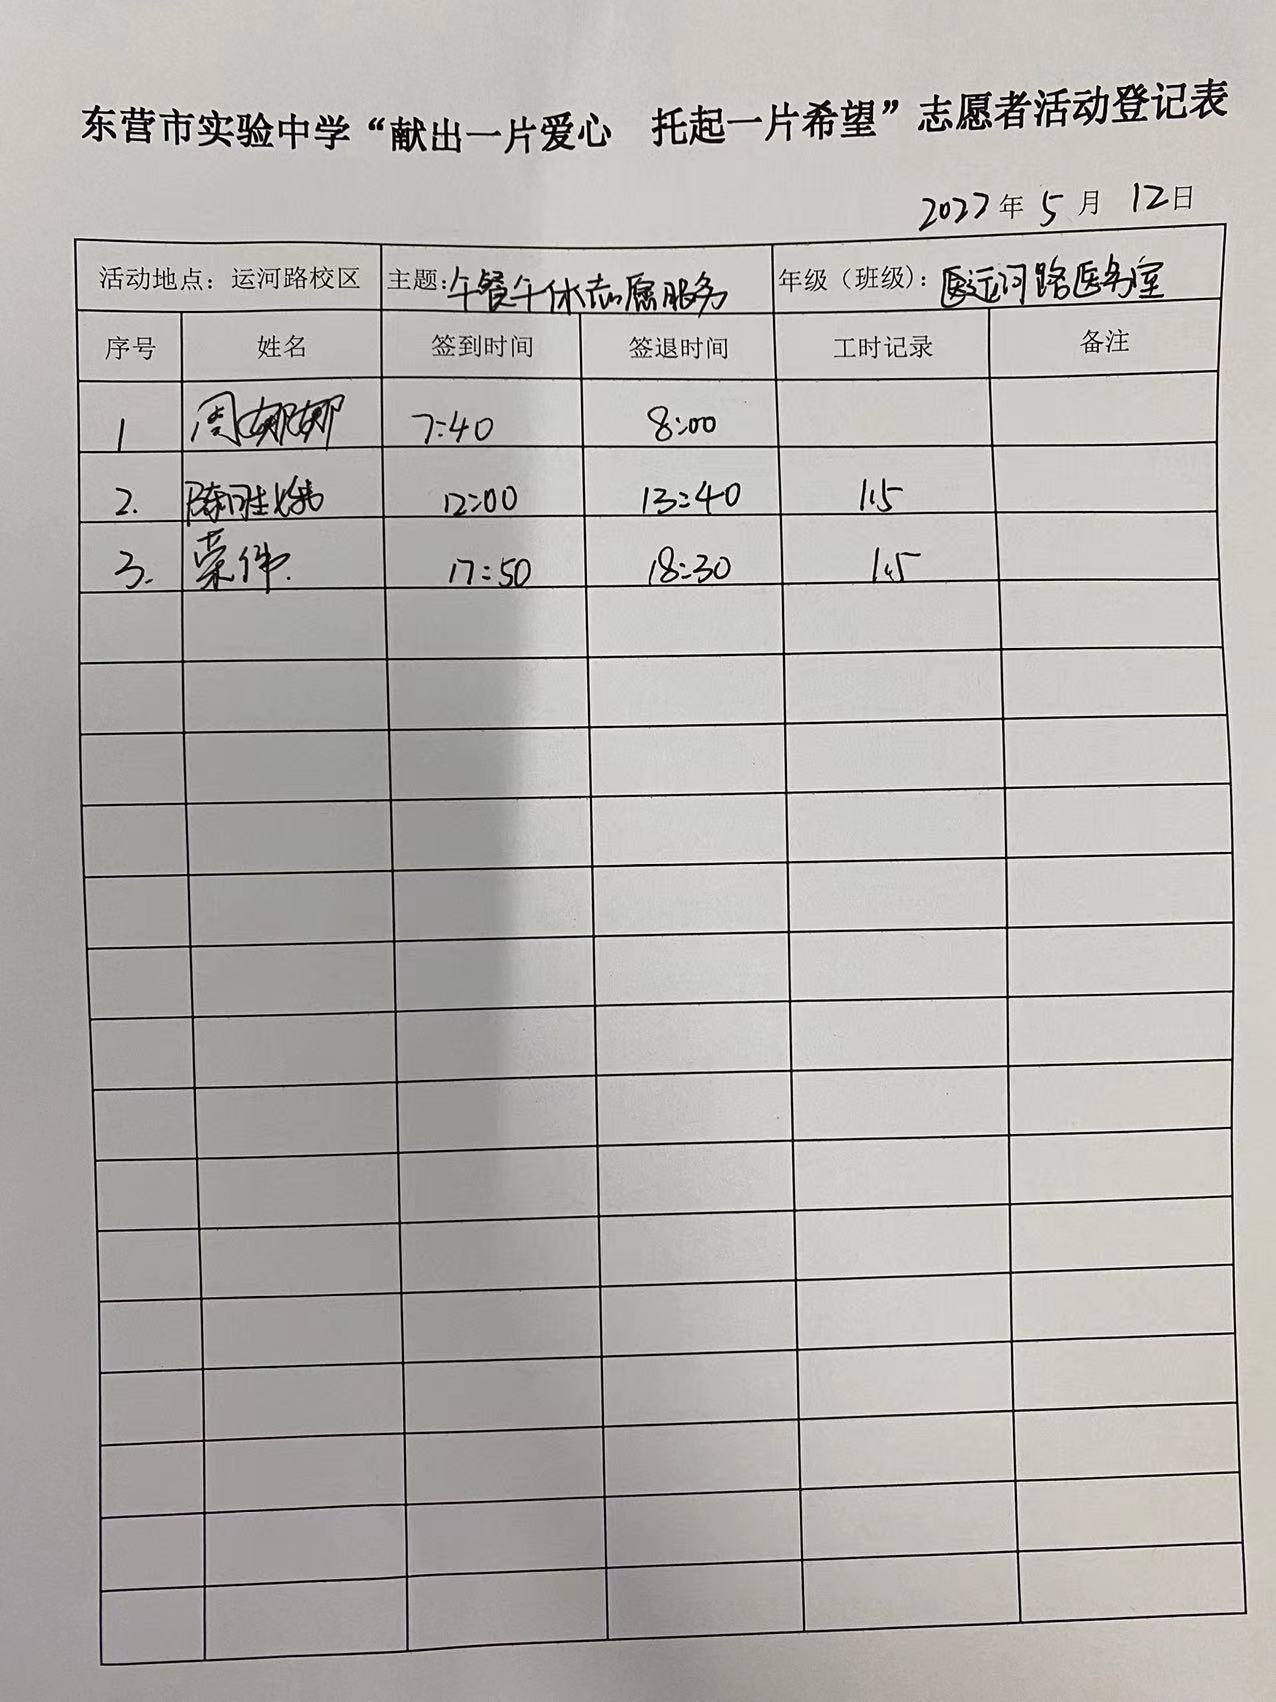 东营市实验中学“献出一片爱心 托起一片希望”志愿者活动登记表
2022年5月12日
活动地点：运河路校区 主题：午餐午休志愿服务 年级（班级）：运河路医务室
序号 姓名 签到时间 签退时间 工时记录 备注
1 周娜娜 7:40 8:00
2. 陈胜 12:00 13:40 1.5
3. 荣伟. 17:50 18:30 1.5